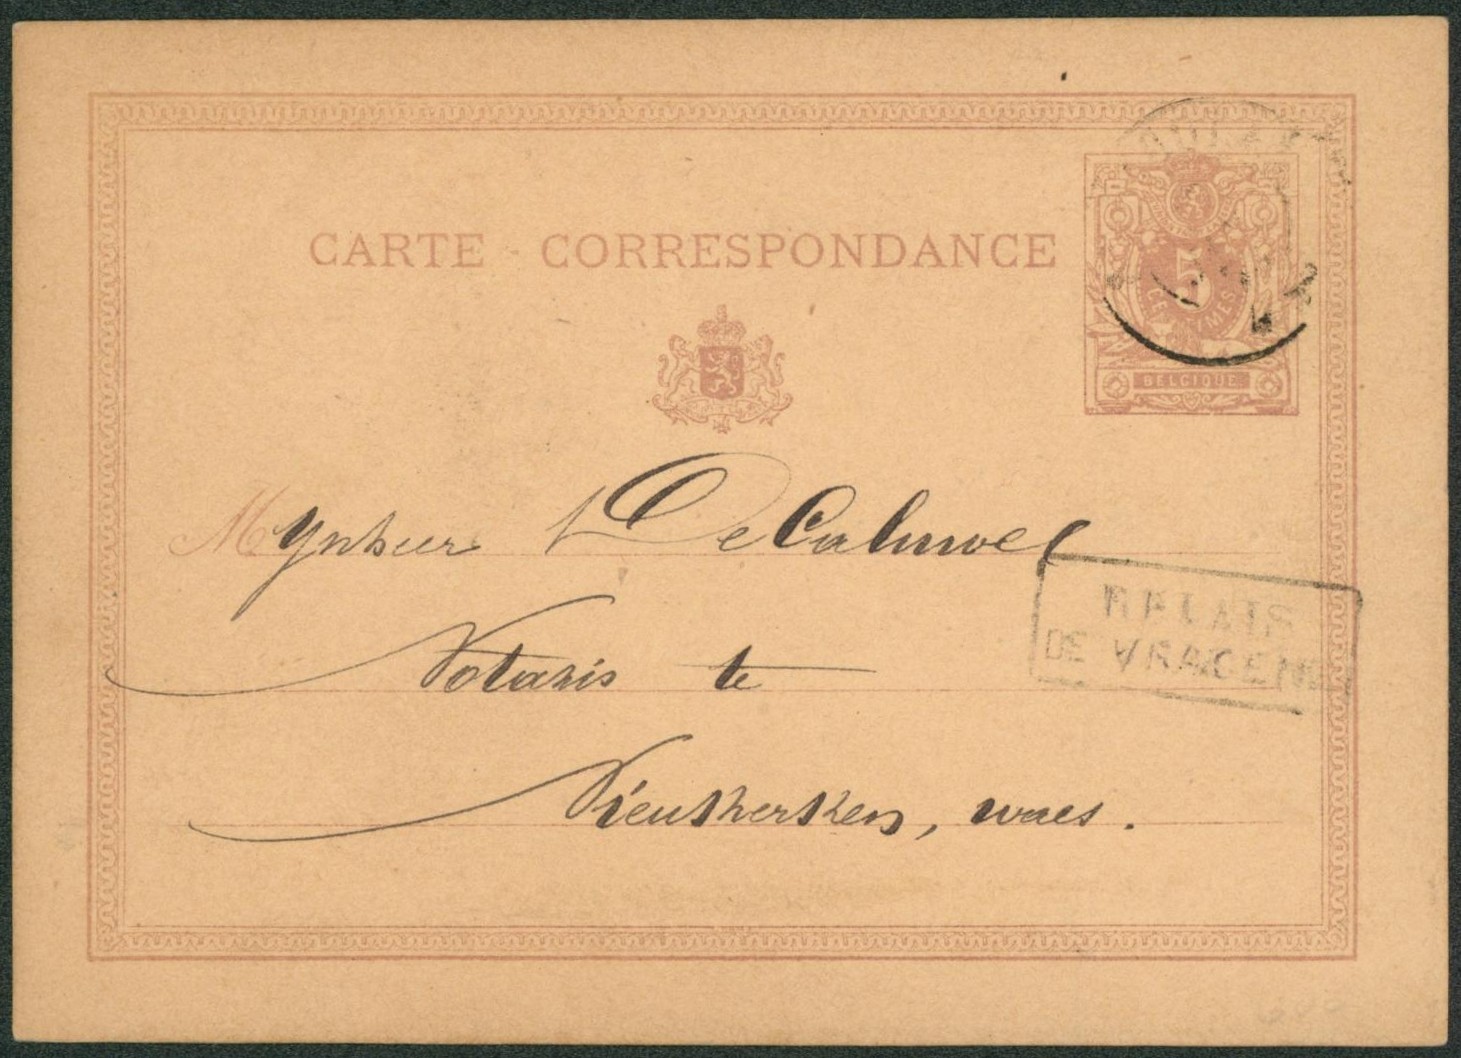 CARTE - CORRESPONDANCE
5
CENTIMES
BELGIQUE
Mynheer De Caluwe
Notaris te
RELAIS
DE VRACENE
Nieukerken, waes.